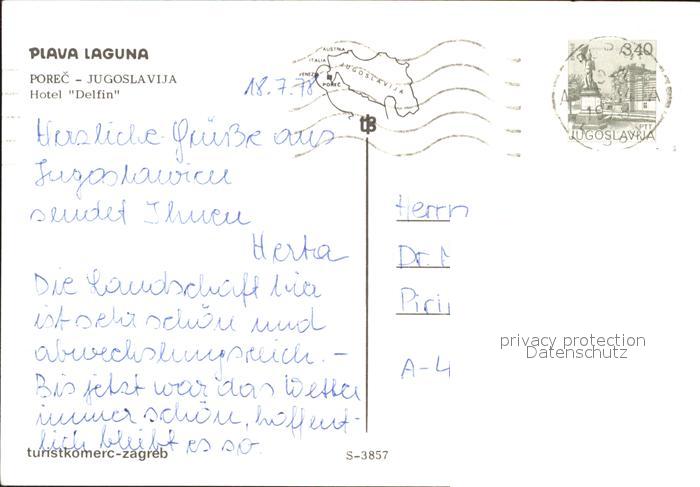 PLAVA LAGUNA
POREČ – JUGOSLAVIJA
Hotel "Delfin"
18.7.78
AUSTRIA
ITALIA
VENEZIA
POREČ
JUGOSLAVIJA
tz
340
PTT
JUGOSLAVIJA
Herzliche Grüße aus
Jugoslawien
sendet Ihnen
Herta
Die Landschaft hier
ist sehr schön und
abwechslungsreich. –
Bis jetzt war das Wetter
immer schön, hoffent-
lich bleibt es so.
Herrn
Dr.
Piri
A-4
privacy protection
Datenschutz
turistkomerc-zagreb
S-3857